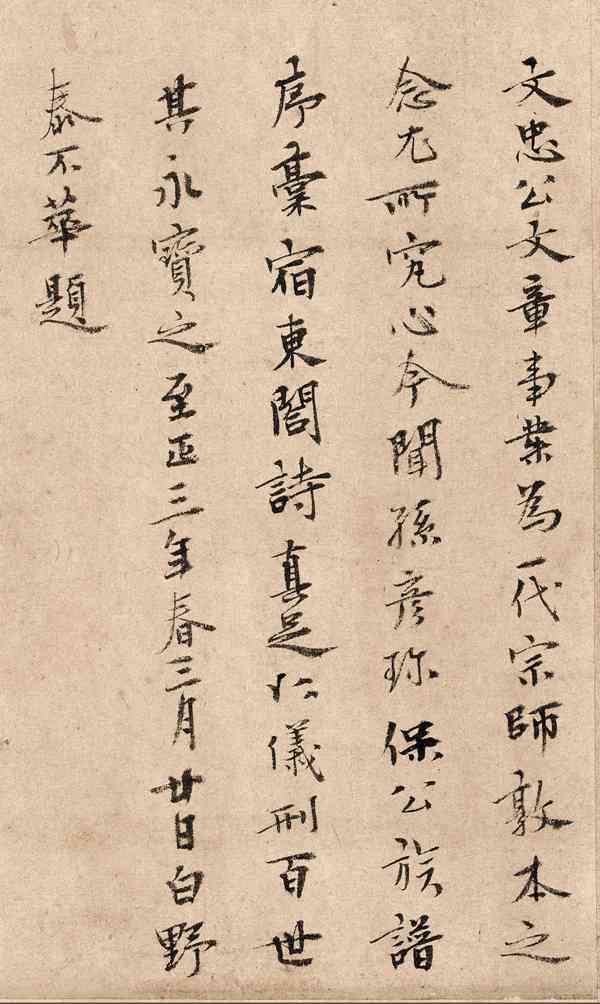 文忠公文章事業為一代宗師敦本之
念尤所究心今聞孫彦珍保公族譜
序稾宿東閤詩真足以儀刑百世
其永寶之至正三年春三月廿日白野
泰不華題